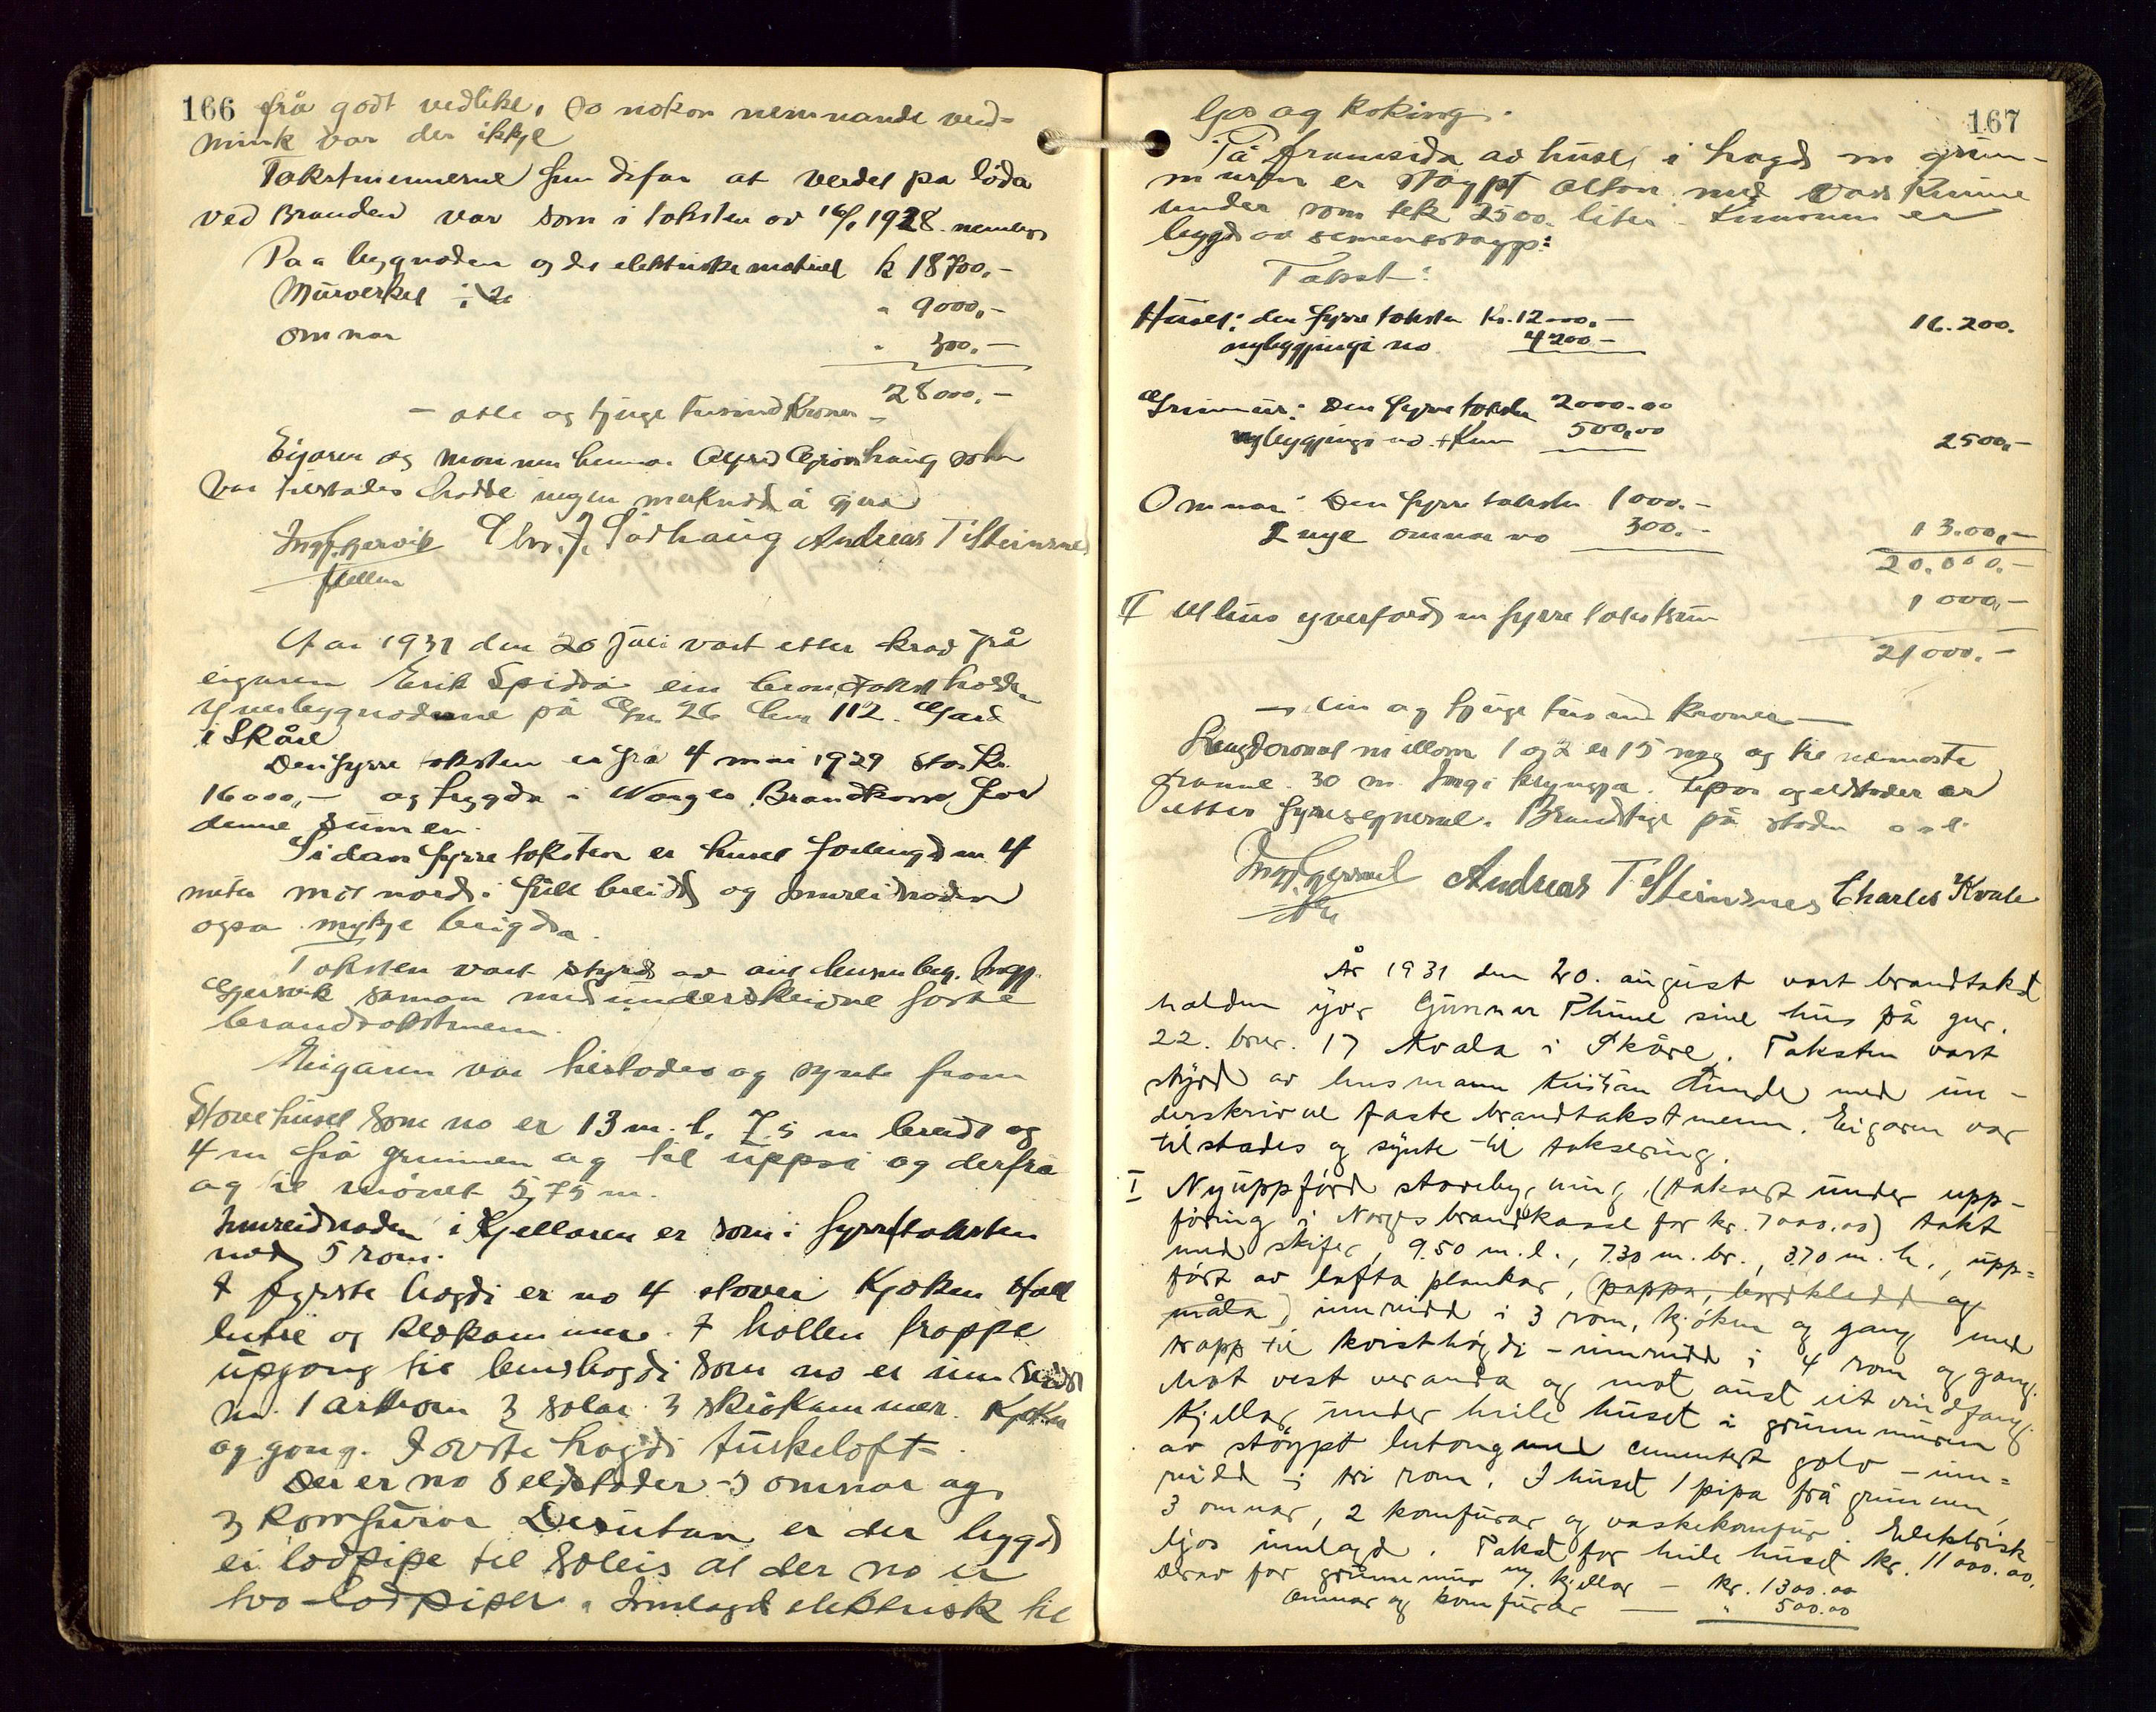 166 frå godt vedlike, so nokon nemnande verd=
mink var der ikkje
Takstmennerne fun difor at verdet på loda
ved Branden var som i taksten av 16/1 1928. nemleg
Paa bygnaden og de elektriske k 18700,-
Murverket i 2 " 9000,-
omnar " 300,-
28000,-
- otte og tjuge tusind Kroner -
Eigaren og mannen hennar Grönhaug som
var tilstades hadde ingen merknad å gjera
Ingv. Gjervik Chr. J. Sörhaug Andreas T Steinsnes
År 1931 den 20 juli vart etter krav frå
eigaren Erik Spidsø ein brandtakst halden
yver bygnaderne på Gn. 26 bnr 112. Gard
i Skåre
Den fyrre taksten er frå 4 mai 1929 stor kr.
16000,- og trygda i Norges Brandkasse for
denne sumen.
Sidan fyrre taksten er huset forlengd m 4
meter mot nord i full breidd og innreidnaden
ogso mykje brigda.
Taksten vart styrd av Ingv.
Gjervik saman med underskrivne faste
brandtakstmenn.
Eigaren var tilstades og synte fram
Stovehuset som no er 13 m. l. 7.5 m breidt og
4 m frå grunnen og til uppsi og derfrå
og til mönet 5,75 m.
Innreidnaden i Kjellaren er som i fyrre taksten
nod 5 rom.
I fyrste högdi er no 4 stover Kjöken Hall
entre og Kledkammer. I hallen trappe
upgang til kvisthögdi som no er innreidd
m. 1 arkrom 3 solar 3 skråkammer. Kjöken
og gong. I övste högdi turkeloft.
Der er no 8 eldstader - 5 omnar og
3 Komfurar Desutan er der bygd
ei lodpipe til soleis at der no er
tvo lodpiper. Innlagd elektrisk til
167
ljos og koking.
På framsida av huset i högd m grun-
muren er støypt altan med vasskumme
under som tek 2500 liter. Kummen er
bygd av sementstøyp:
Takst:
Huset: den fyrre taksten Kr. 12000.- 16.200.
nybyggjingi no 4200-
Grunmur: Den fyrre taksten 2000.00
nybyggjingi no + Kum 500,00 2500,-
Omnar: Den fyrre taksten 1000.-
2 nye omnar no 300.- 13.00,-
20.000.-
II Uthus yverförd m fyrre takstsum 1000,-
21000.-
- ein og tjuge tusund kroner -
Lengdeavstand millom 1 og 2 er 15 m og til næmaste
granne 30 m. Ingi kringja. Pipor og eldstader er
etter fyresegnerne. Brandstige på staden o s l
Ingv. Gjervik Andreas T Steinsnes Charles Kvale
År 1931 den 20. august vart brandtakst
halden yver Gunnar Thune sine hus på gnr.
22. bnr. 17 Kvala i Skåre. Taksten vart
styrd av husmann Kristian Lunde med un-
derskrivne faste brandtakstmenn. Eigaren var
tilstades og synte til taksering.
I Nyuppförd stovebygning, (taksert under upp-
föring i Norges brandkasse for kr. 7000.00) takt
med skifer, 9.50 m. l., 7.30 m. br., 3.70 m. h., upp=
fört av lafta plankar, (pappa, bordkledd og
måla) innreidd i 3 rom, kjöken og gang med
trapp til kvisthögdi - innreidd i 4 rom og gang.
Mot vest veranda og mot aust eit vindfang.
Kjellar under heile huset i grunnmuren
av stöypt betong med cementert golv - inn=
reidd i tri rom. I huset 1 pipa frå grunnen,
3 omnar, 2 komfurar og vaskekomfur. Elektrisk
ljos innlagd. Takst for heile huset kr. 11000.00.
Derav for grunnmur m/ kjellar - kr. 1300.00
omnar og komfurar - " 500.00